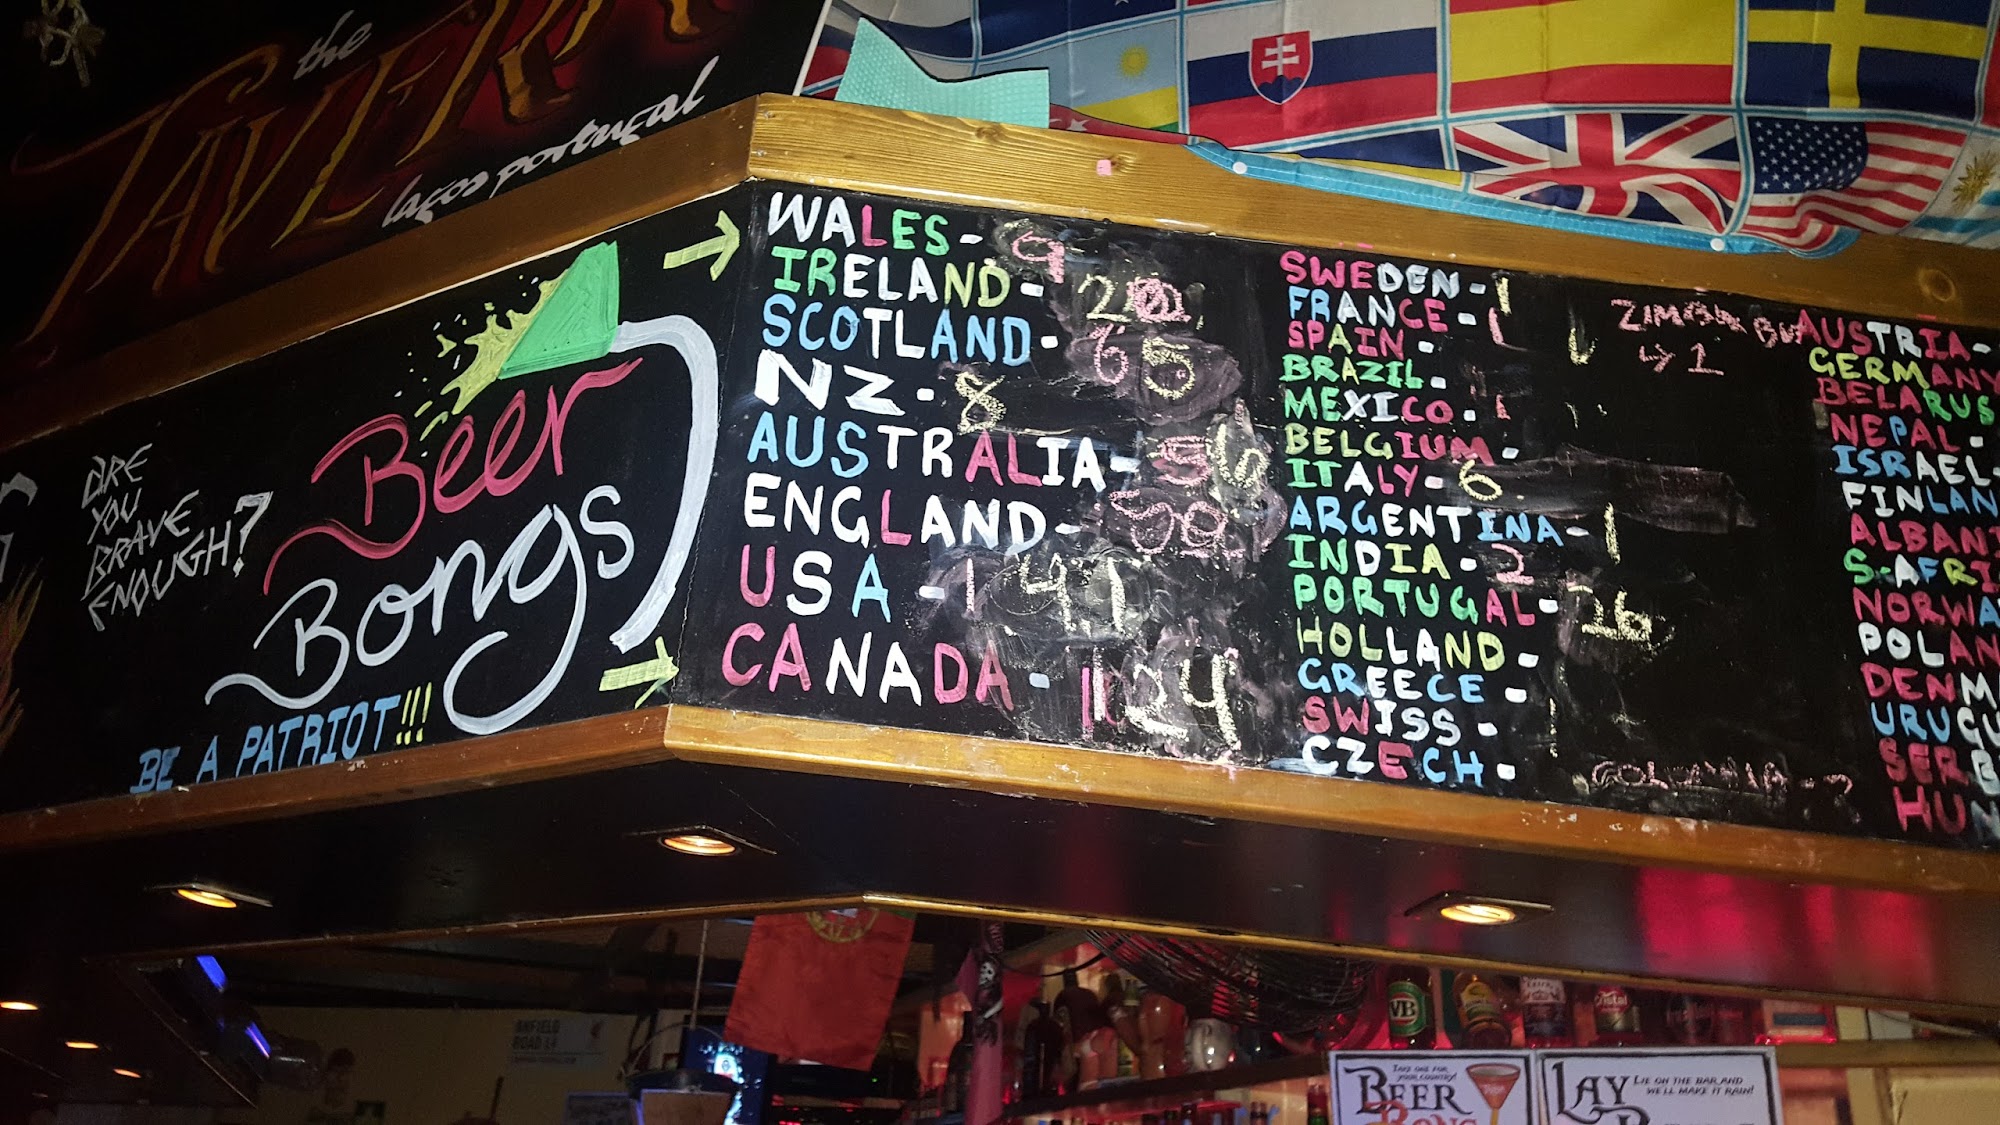 the
TAVERN
lagos portugal
ARE
YOU
BRAVE
ENOUGH?
Beer
Bongs
BE A PATRIOT!!!
WALES - 9
IRELAND -
SCOTLAND - 65
NZ - 8
AUSTRALIA -
ENGLAND -
USA - 141
CANADA - 124
SWEDEN - 1
FRANCE - 1
SPAIN -
BRAZIL -
MEXICO - 1
BELGIUM -
ITALY - 6
ARGENTINA - 1
INDIA - 2
PORTUGAL - 26
HOLLAND -
GREECE -
SWISS -
CZECH -
↳ 1
AUSTRIA -
GERMANY
BELARUS
NEPAL -
ISRAEL -
FINLAN
ALBANI
S-AFRI
NORWA
POLAN
DENM
URUGU
SERB
HUN
ANFIELD
ROAD L4
VB
Cristal
TAKE ONE FOR
YOUR COUNTRY!
BEER
BONG
LAY
LIE ON THE BAR AND
WE'LL MAKE IT RAIN!